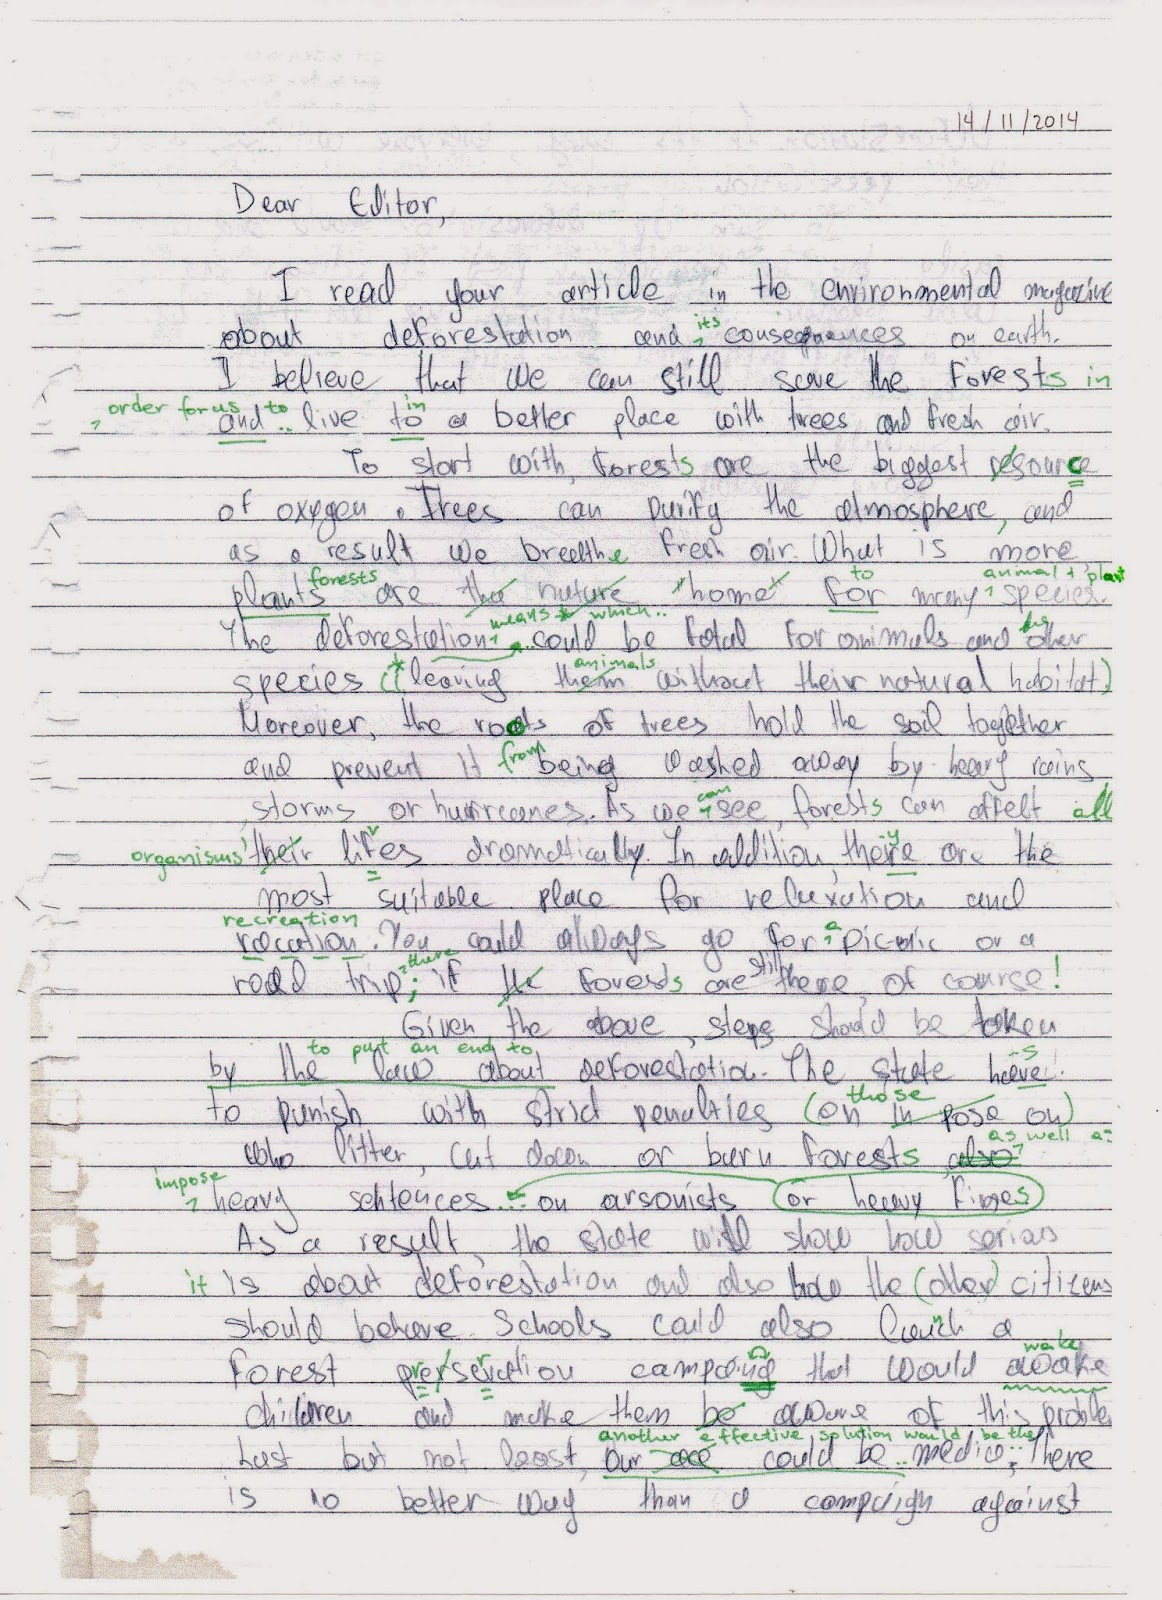 14/11/2014
Dear Editor,
I read your article in the environmental magazine
about deforestation and its consequences on earth.
I believe that we can still save the forests in
order for us and to live to in a better place with trees and fresh air.
To start with, forests are the biggest resource
of oxygen. Trees can purify the atmosphere, and
as a result we breathe fresh air. What is more
plants forests are the nature "home" for to many animal + plant species.
The deforestation means which.. could be fatal for animals and other
species (leaving them animals without their natural habitat)
Moreover, the roots of trees hold the soil together
and prevent it from being washed away by heavy rains
storms or hurricanes. As we can see, forests can affect all
organisms' their lives dramatically. In addition, there are the
most suitable place for relaxation and
recreation
racation. You could always go for a pic-nic or a
road trip there; if the forests are still there, of course!
Given the above, steps should be taken
to put an end to
by the law about deforestation. The state have -s
to punish with strict penalties (on those in pose on)
who litter, cut down or burn forests also as well as
impose heavy sentences... on arsonists or heavy fines
As a result, the state will show how serious
it is about deforestation and also how the (other) citizens
should behave. Schools could also launch a
forest preservation campaing that would awake wake
children and make them be aware of this proble
another effective solution would be the
Last but not least, our could be.. media.. There
is no better way than a campaign against